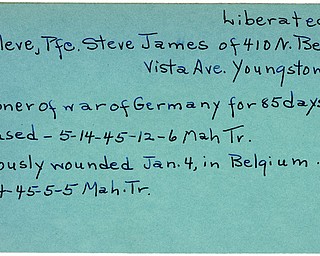 Liberated
leve, Pfc. Steve James of 410 N. Be
Vista Ave. Youngstow
oner of war of Germany for 85 days
ased - 5-14-45-12-6 Mah Tr.
ously wounded Jan. 4, in Belgium.
45-5-5 Mah. Tr.